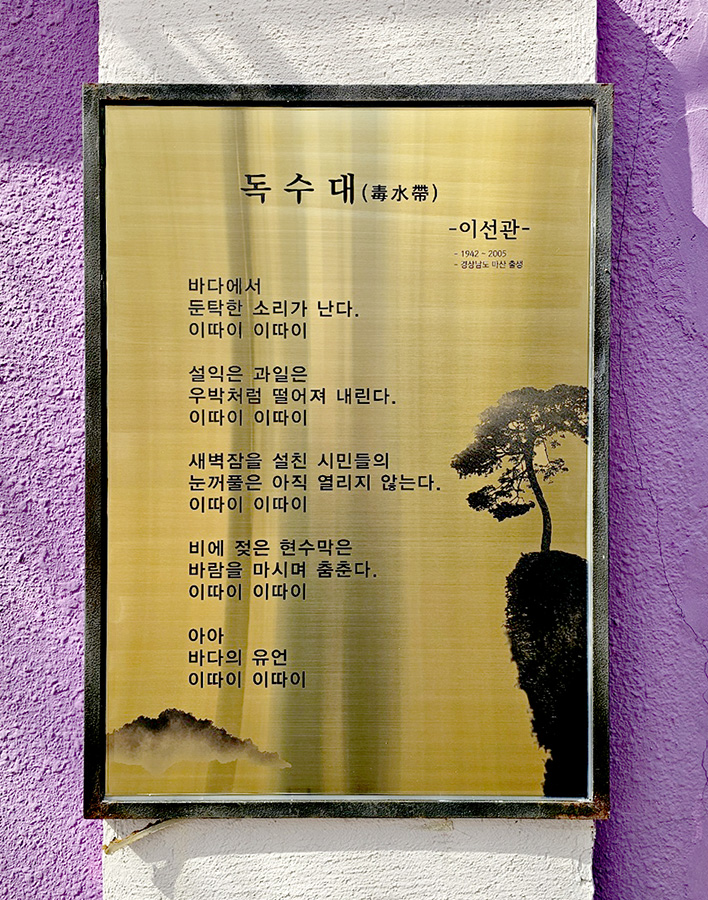 독수대(毒水帶)
-이선관-
- 1942 - 2005
- 경상남도 마산 출생
바다에서
둔탁한 소리가 난다.
이따이 이따이
설익은 과일은
우박처럼 떨어져 내린다.
이따이 이따이
새벽잠을 설친 시민들의
눈꺼풀은 아직 열리지 않는다.
이따이 이따이
비에 젖은 현수막은
바람을 마시며 춤춘다.
이따이 이따이
아아
바다의 유언
이따이 이따이